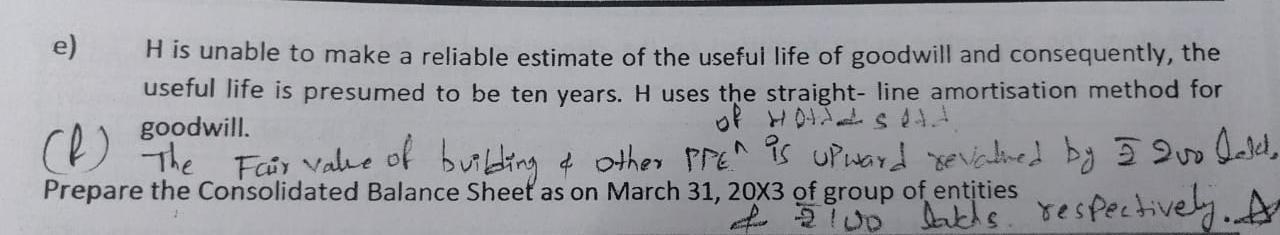 e) H is unable to make a reliable estimate of the useful life of goodwill and consequently, the
useful life is presumed to be ten years. H uses the straight- line amortisation method for
goodwill.
of H
(f) The Fair value of building & other PPE ^ is upward revalued by ₹ 200 lakh,
Prepare the Consolidated Balance Sheet as on March 31, 20X3 of group of entities
& ₹ 100 lakhs. respectively.